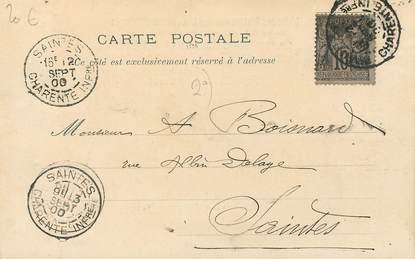 20€
CARTE POSTALE
Ce côté est exclusivement réservé à l'adresse
SAINTES
16E 12
SEPT
00
CHARENTE INFRE
10
CHARENTE INFRE
2)
Monsieur A Boisnard
rue Albin Delage
Saintes
SAINTES
13
SEPT
00
CHARENTE INFRE